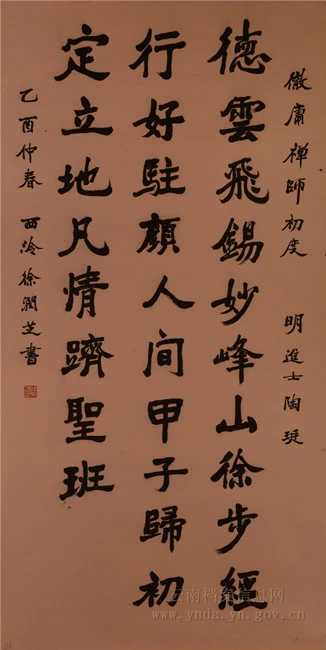 徹庸禪師初度 明進士陶珽
德雲飛錫妙峰山徐步經
行好駐顏人间甲子歸初
定立地凡情躋聖班
乙酉仲春 西泠徐潤芝書
云南档案信息网
www.ynda.yn.gov.cn